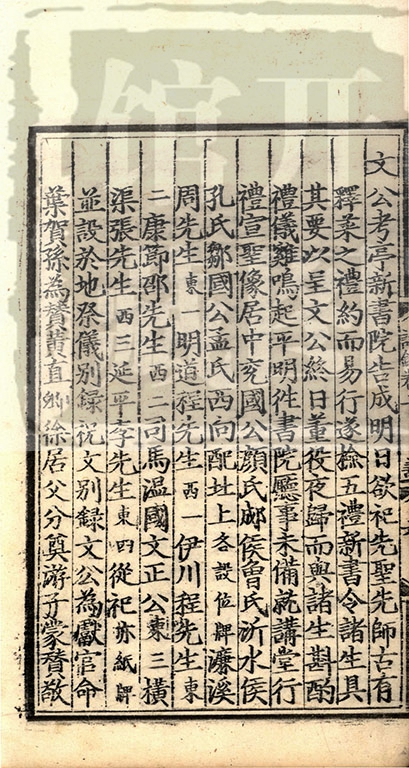 文公考亭新書院告成明日欲祀先聖先師古有
釋菜之禮約而易行遂檢五禮新書令諸生具
其要以呈文公終日董役夜歸而與諸生斟酌
禮儀雞鳴起平明徃書院廳事未備就講堂行
禮宣聖像居中兖國公顏氏郕侯曾氏沂水侯
孔氏鄒國公孟氏西向配址上各設位牌濂溪
周先生東一明道程先生西一伊川程先生東
二康節邵先生西二司馬温國文正公東三橫
渠張先生西三延平李先生東四從祀亦紙牌
並設於地祭儀別録祝文別録文公為獻官命
葉賀孫為贊黃直卿徐居父分奠㳺子蒙贊敬